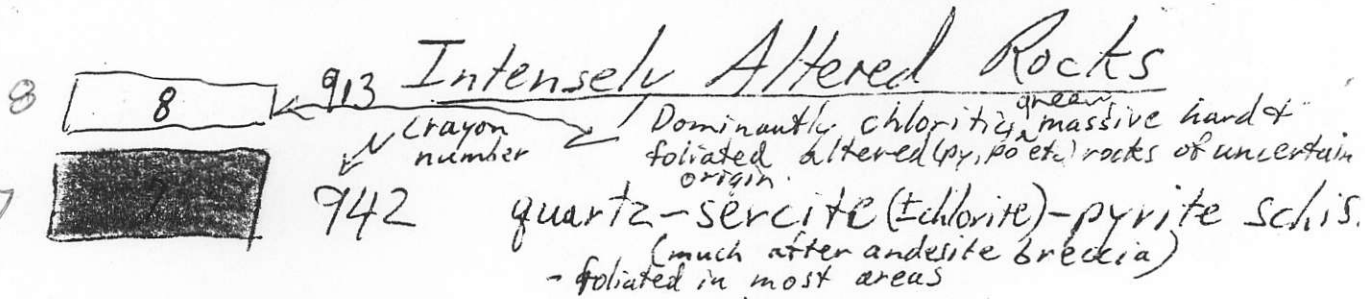 Intensely Altered Rocks
8 8 913
crayon number
Dominantly chloritic, green massive hard &
foliated altered (py, po etc) rocks of uncertain
origin.
7 7 942 quartz-sercite (±chlorite)-pyrite schis.
(much after andesite breccia)
- foliated in most areas